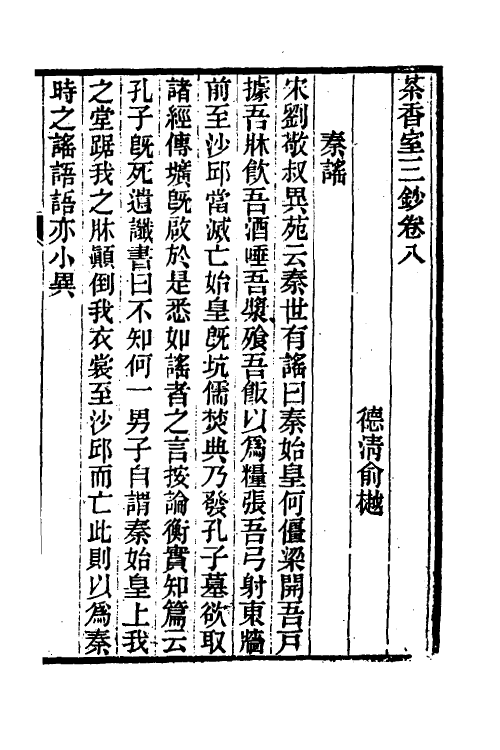 茶香室三鈔卷八
德清俞樾
秦謠
宋劉敬叔異苑云秦世有謠曰秦始皇何僵梁開吾戸
據吾牀飲吾酒唾吾漿飱吾飯以爲糧張吾弓射東牆
前至沙邱當滅亡始皇旣坑儒焚典乃發孔子墓欲取
諸經傳壙旣啟於是悉如謠者之言按論衡實知篇云
孔子旣死遺讖書曰不知何一男子自謂秦始皇上我
之堂踞我之牀顚倒我衣裳至沙邱而亡此則以爲秦
時之謠語語亦小異